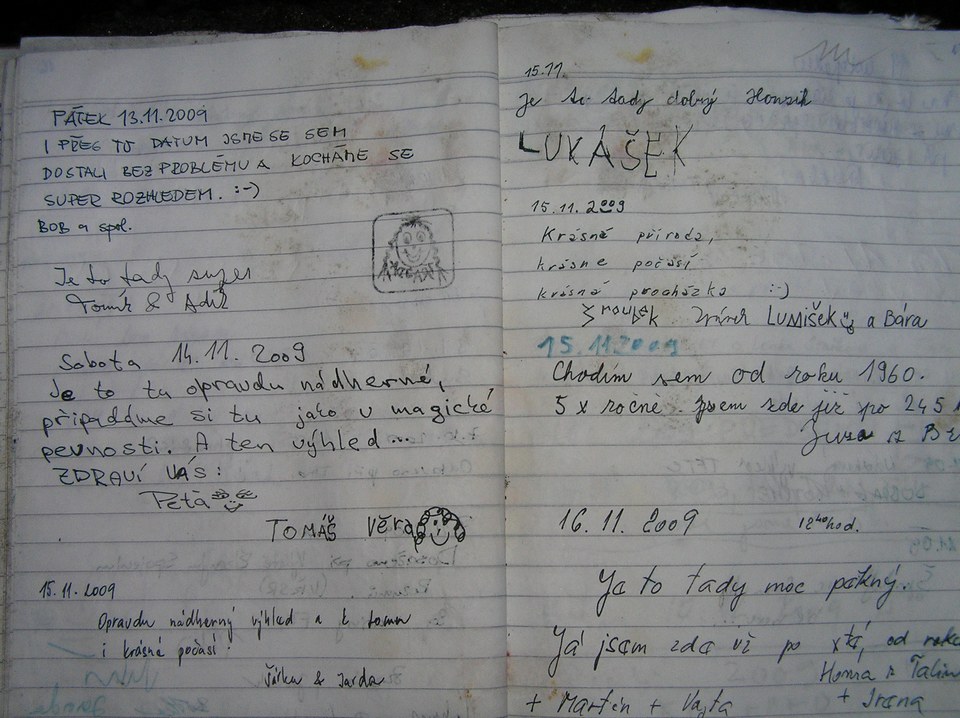 PÁTEK 13.11.2009
I PŘES TO DATUM JSME SE SEM
DOSTALI BEZ PROBLÉMU A KOCHÁME SE
SUPER ROZHLEDEM. :-)
BOB a spol.
Je to tady super
Tomík & AdíK
Sobota 14.11. 2009
Je to tu opravdu nádherné,
připadáme si tu jako v magické
pevnosti. A ten výhled...
ZDRAVÍ VÁS:
Peťa
TOMÁŠ Věra
15.11.2009
Opravdu nádherný výhled a k tomu
i krásné počasí!
Jirka & Jarda
15.11.
je to tady dobrý Honzík
LUKÁŠEK
15.11.2009
Krásná příroda,
krásné počasí
krásná procházka :-)
Šroubek Lumíšek a Bára
15.11.2009
Chodím sem od roku 1960.
5 x ročně. jsem zde již po 245
Jura z
16. 11. 2009 12⁴⁰hod.
Ja to tady moc pěkný.
Já jsem zda už po xté, od roku
Honza
+ Martin + Vojta + Irena